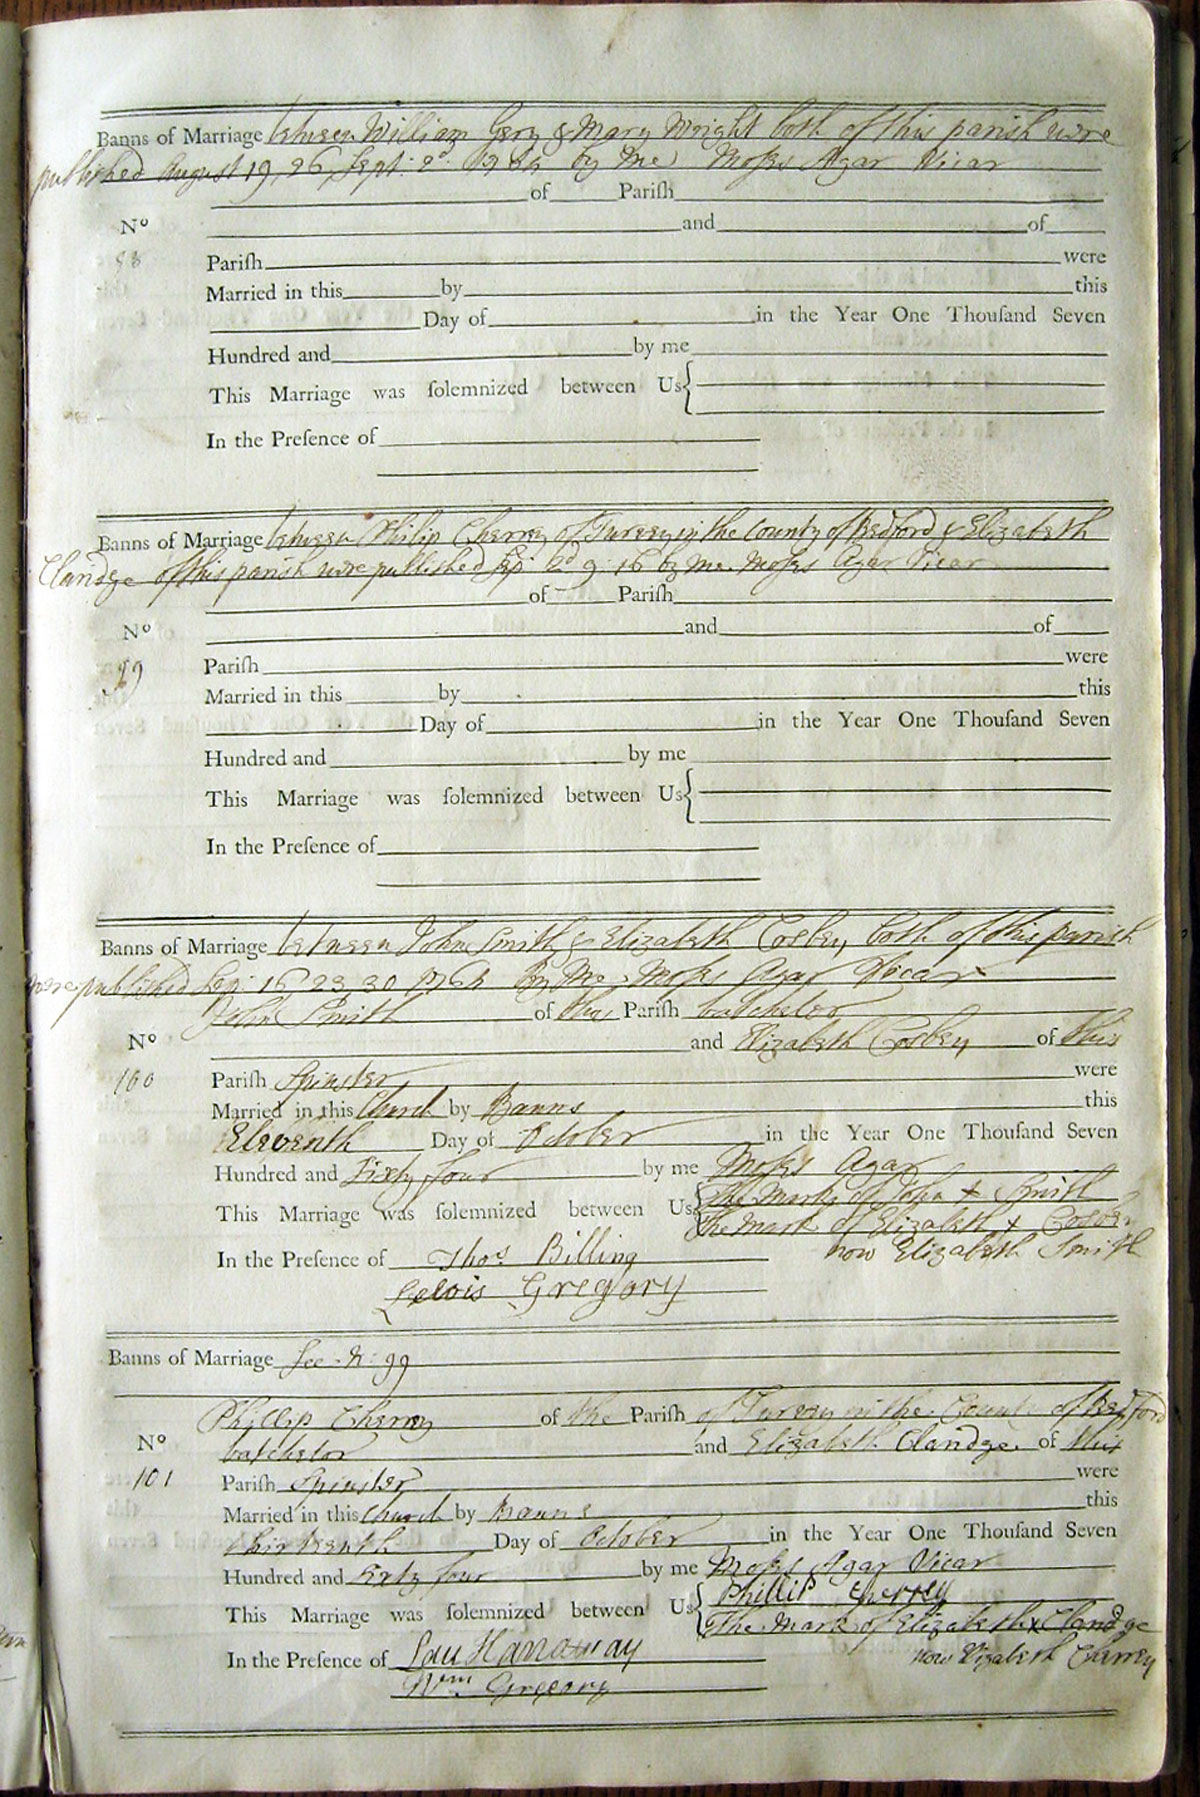 Banns of Marriage between William Gery & Mary Wright both of this parish were
published August 19, 26, Sept: 2d: 1764 by me Moses Agar Vicar
of Parish
No and of
98
Pariſh were
Married in this by this
Day of in the Year One Thouſand Seven
Hundred and by me
This Marriage was ſolemnized between Us
In the Preſence of
Banns of Marriage between Philip Cherrey of Turvey in the County of Bedford & Elizabeth
Claridge of this parish were published Sep: 2d 9: 16 by me Moses Agar Vicar
of Pariſh
No and of
99
Pariſh were
Married in this by this
Day of in the Year One Thouſand Seven
Hundred and by me
This Marriage was ſolemnized between Us
In the Preſence of
Banns of Marriage between John Smith & Elizabeth Cosbey both of this parish
were published Sep: 16 23 30 1764 by Me Moses Agar Vicar
John Smith of this Pariſh batchelor
No and Elizabeth Cosbey of this
100
Pariſh Spinster were
Married in this Church by Banns this
Eleventh Day of October in the Year One Thouſand Seven
Hundred and Sixty four by me Moses Agar
The Mark of John + Smith
This Marriage was ſolemnized between Us
The Mark of Elizabeth + Cosbey
now Elizabeth Smith
In the Preſence of Thos Billing
Lewis Gregory
Banns of Marriage See N: 99
Phillip Cherrey of the Pariſh of Turvey in the County of Bedford
No batchelor and Elizabeth Claridge of this
101
Pariſh Spinster were
Married in this Church by Banns this
thirteenth Day of October in the Year One Thouſand Seven
Hundred and Sixty four by me Moses Agar Vicar
Phillip Cherrey
This Marriage was ſolemnized between Us
The Mark of Elizabeth x Claridge
now Elizabeth Cherrey
In the Preſence of Hannaway
Wm Gregory